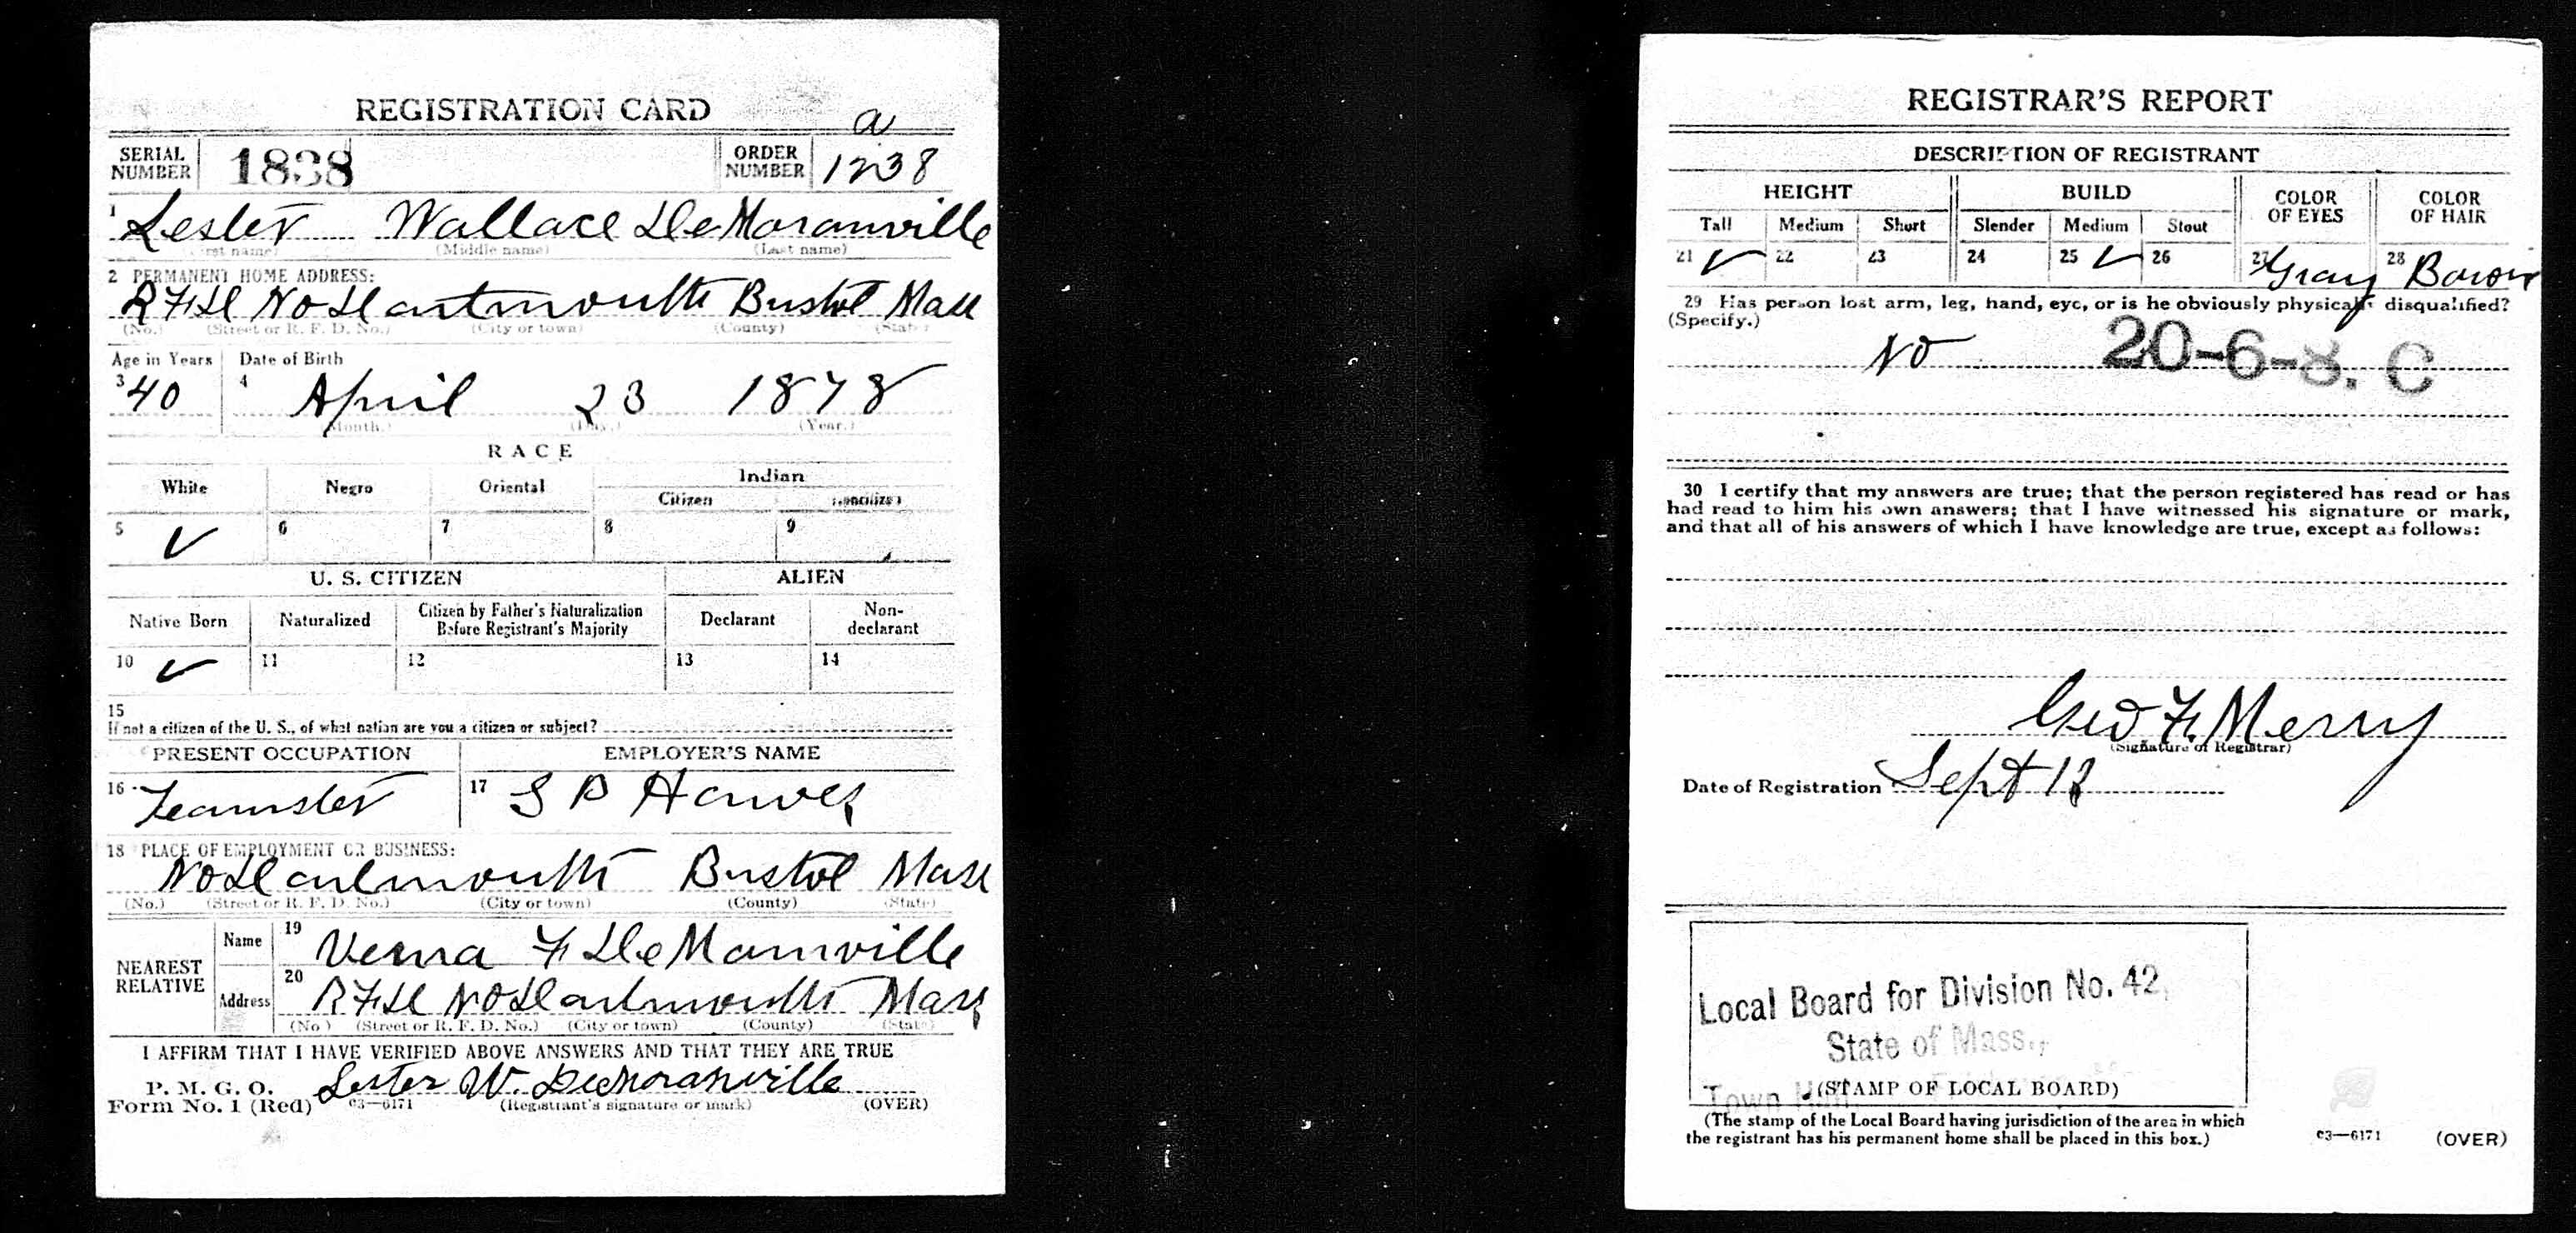 REGISTRATION CARD
a
SERIAL NUMBER 1838 ORDER NUMBER 1238
1 Lester Wallace DeMoranville
(First name) (Middle name) (Last name)
2 PERMANENT HOME ADDRESS:
RFD No Dartmouth Bristol Mass
(No.) (Street or R. F. D. No.) (City or town) (County) (State)
Age in Years Date of Birth
3 40 4 April 23 1878
(Month.) (Day.) (Year.)
RACE
White Negro Oriental Indian
Citizen Noncitizen
5 ✓ 6 7 8 9
U. S. CITIZEN ALIEN
Native Born Naturalized Citizen by Father's Naturalization Before Registrant's Majority Declarant Non-declarant
10 ✓ 11 12 13 14
15
If not a citizen of the U. S., of what nation are you a citizen or subject?
PRESENT OCCUPATION EMPLOYER'S NAME
16 Teamster 17 S B Hawes
18 PLACE OF EMPLOYMENT OR BUSINESS:
No Dartmouth Bristol Mass
(No.) (Street or R. F. D. No.) (City or town) (County) (State)
NEAREST RELATIVE Name 19 Verna F DeMoranville
Address 20 RFD No Dartmouth Mass
(No.) (Street or R. F. D. No.) (City or town) (County) (State)
I AFFIRM THAT I HAVE VERIFIED ABOVE ANSWERS AND THAT THEY ARE TRUE
P. M. G. O. Lester W. DeMoranville
Form No. 1 (Red) c3—6171 (Registrant's signature or mark) (OVER)
REGISTRAR'S REPORT
DESCRIPTION OF REGISTRANT
HEIGHT BUILD COLOR OF EYES COLOR OF HAIR
Tall Medium Short Slender Medium Stout
21 ✓ 22 23 24 25 ✓ 26 27 Gray 28 Brown
29 Has person lost arm, leg, hand, eye, or is he obviously physically disqualified?
(Specify.)
No 20-6-8. C
30 I certify that my answers are true; that the person registered has read or has
had read to him his own answers; that I have witnessed his signature or mark,
and that all of his answers of which I have knowledge are true, except as follows:
Geo F. Merry
(Signature of Registrar)
Date of Registration Sept 12
Local Board for Division No. 42,
State of Mass.,
Town
(STAMP OF LOCAL BOARD)
(The stamp of the Local Board having jurisdiction of the area in which
the registrant has his permanent home shall be placed in this box.)
c3—6171 (OVER)